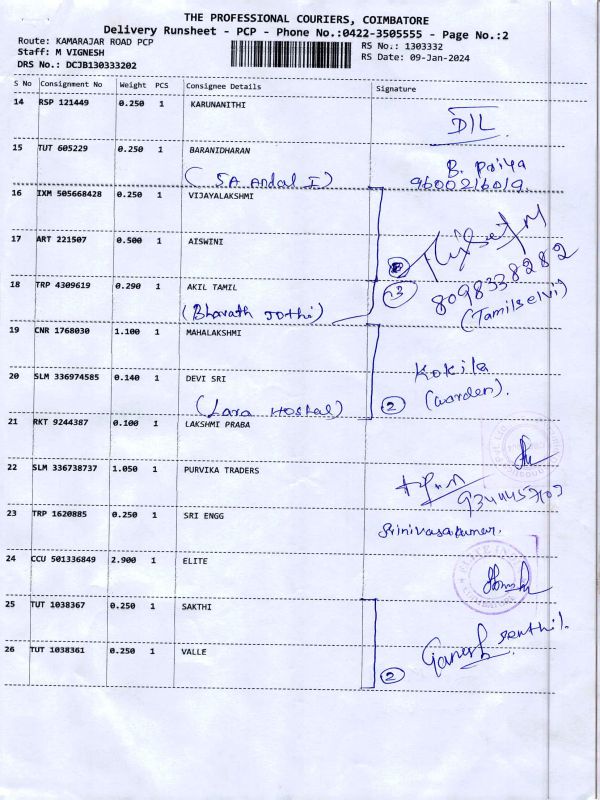 THE PROFESSIONAL COURIERS, COIMBATORE
Delivery Runsheet - PCP - Phone No.:0422-3505555 - Page No.:2
Route: KAMARAJAR ROAD PCP
Staff: M VIGNESH
DRS No.: DCJB130333202
RS No.: 1303332
RS Date: 09-Jan-2024
S No Consignment No Weight PCS Consignee Details Signature
14 RSP 121449 0.250 1 KARUNANITHI
D/L
15 TUT 605229 0.250 1 BARANIDHARAN B. Priya
(SA Andal I) 9600216019
16 IXM 505668428 0.250 1 VIJAYALAKSHMI
17 ART 221507 0.500 1 AISWINI
18 TRP 4309619 0.290 1 AKIL TAMIL 3 8098338282
(Bharath Jothi) (Tamilselvi)
19 CNR 1768030 1.100 1 MAHALAKSHMI
Kokila
20 SLM 336974585 0.140 1 DEVI SRI (warden).
(Lara Hostal) 2
21 RKT 9244387 0.100 1 LAKSHMI PRABA
22 SLM 336738737 1.050 1 PURVIKA TRADERS
23 TRP 1620885 0.250 1 SRI ENGG
Srinivasakumar.
24 CCU 501336849 2.900 1 ELITE
25 TUT 1038367 0.250 1 SAKTHI
Ganesh Senthil.
26 TUT 1038361 0.250 1 VALLE
2